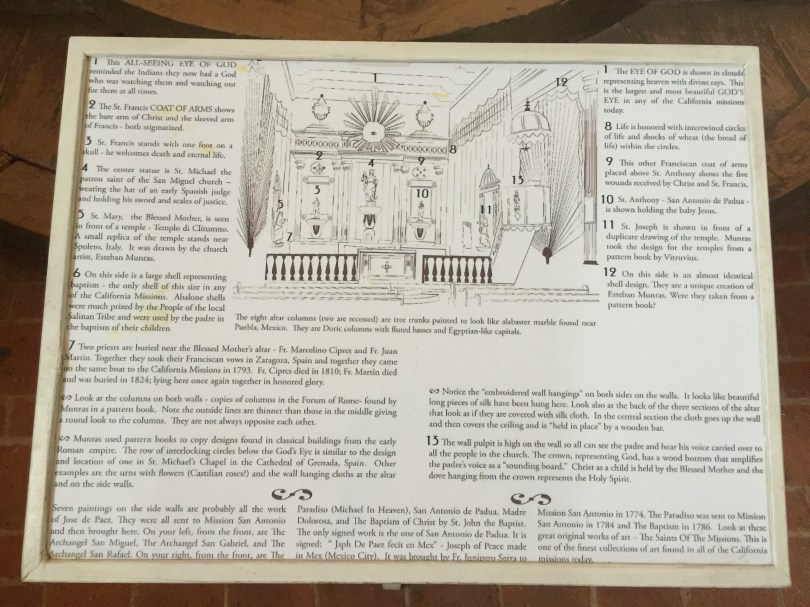 1 This ALL-SEEING EYE OF GOD
reminded the Indians they now had a God
who was watching them and watching out
for them at all times.
2 The St. Francis COAT OF ARMS shows
the bare arm of Christ and the sleeved arm
of Francis - both stigmatized.
3 St. Francis stands with one foot on a
skull - he welcomes death and eternal life.
4 The center statue is St. Michael the
patron saint of the San Miguel church –
wearing the hat of an early Spanish judge
and holding his sword and scales of justice.
5 St. Mary, the Blessed Mother, is seen
in front of a temple - Templo di Clitumno.
A small replica of the temple stands near
Spoleto, Italy. It was drawn by the church
artist, Esteban Munras.
6 On this side is a large shell representing
baptism - the only shell of this size in any
of the California Missions. Abalone shells
were much prized by the People of the local
Salinan Tribe and were used by the padre in
the baptism of their children
1
12
8
2
4
9
3
10
13
5
7
11
The eight altar columns (two are recessed) are tree trunks painted to look like alabaster marble found near
Puebla, Mexico. They are Doric columns with fluted basses and Egyptian-like capitals.
1 The EYE OF GOD is shown in clouds
representing heaven with divine rays. This
is the largest and most beautiful GOD'S
EYE in any of the California missions
today.
8 Life is honored with intertwined circles
of life and shocks of wheat (the bread of
life) within the circles.
9 This other Franciscan coat of arms
placed above St. Anthony shows the five
wounds received by Christ and St. Francis.
10 St. Anthony - San Antonio de Padua -
is shown holding the baby Jesus.
11 St. Joseph is shown in front of a
duplicate drawing of the temple. Munras
took the design for the temples from a
pattern book by Vitruvius.
12 On this side is an almost identical
shell design. They are a unique creation of
Esteban Munras. Were they taken from a
pattern book?
7 Two priests are buried near the Blessed Mother's altar - Fr. Marcelino Cipres and Fr. Juan
Martin. Together they took their Franciscan vows in Zaragoza, Spain and together they came
on the same boat to the California Missions in 1793. Fr. Cipres died in 1810; Fr. Martin died
and was buried in 1824; lying here once again together in honored glory.
Look at the columns on both walls - copies of columns in the Forum of Rome- found by
Munras in a pattern book. Note the outside lines are thinner than those in the middle giving
a round look to the columns. They are not always opposite each other.
Munras used pattern books to copy designs found in classical buildings from the early
Roman empire. The row of interlocking circles below the God's Eye is similar to the design
and location of one in St. Michael's Chapel in the Cathedral of Grenada, Spain. Other
examples are the urns with flowers (Castilian roses?) and the wall hanging cloths at the altar
and on the side walls.
Notice the "embroidered wall hangings" on both sides on the walls. It looks like beautiful
long pieces of silk have been hung here. Look also at the back of the three sections of the altar
that look as if they are covered with silk cloth. In the central section the cloth goes up the wall
and then covers the ceiling and is "held in place" by a wooden bar.
13 The wall pulpit is high on the wall so all can see the padre and hear his voice carried over to
all the people in the church. The crown, representing God, has a wood bottom that amplifies
the padre's voice as a "sounding board." Christ as a child is held by the Blessed Mother and the
dove hanging from the crown represents the Holy Spirit.
Seven paintings on the side walls are probably all the work
of Jose de Paez. They were all sent to Mission San Antonio
and then brought here. On your left, from the front, are The
Archangel San Miguel, The Archangel San Gabriel, and The
Archangel San Rafael. On your right, from the front, are The
Paradiso (Michael In Heaven), San Antonio de Padua, Madre
Dolorosa, and The Baptism of Christ by St. John the Baptist.
The only signed work is the one of San Antonio de Padua. It is
signed: " Jsph De Paez fecit en Mex" - Joseph of Peace made
in Mex (Mexico City). It was brought by Fr. Junipero Serra to
Mission San Antonio in 1774. The Paradiso was sent to Mission
San Antonio in 1784 and The Baptism in 1786. Look at these
great original works of art – The Saints Of The Missions. This is
one of the finest collections of art found in all of the California
missions today.